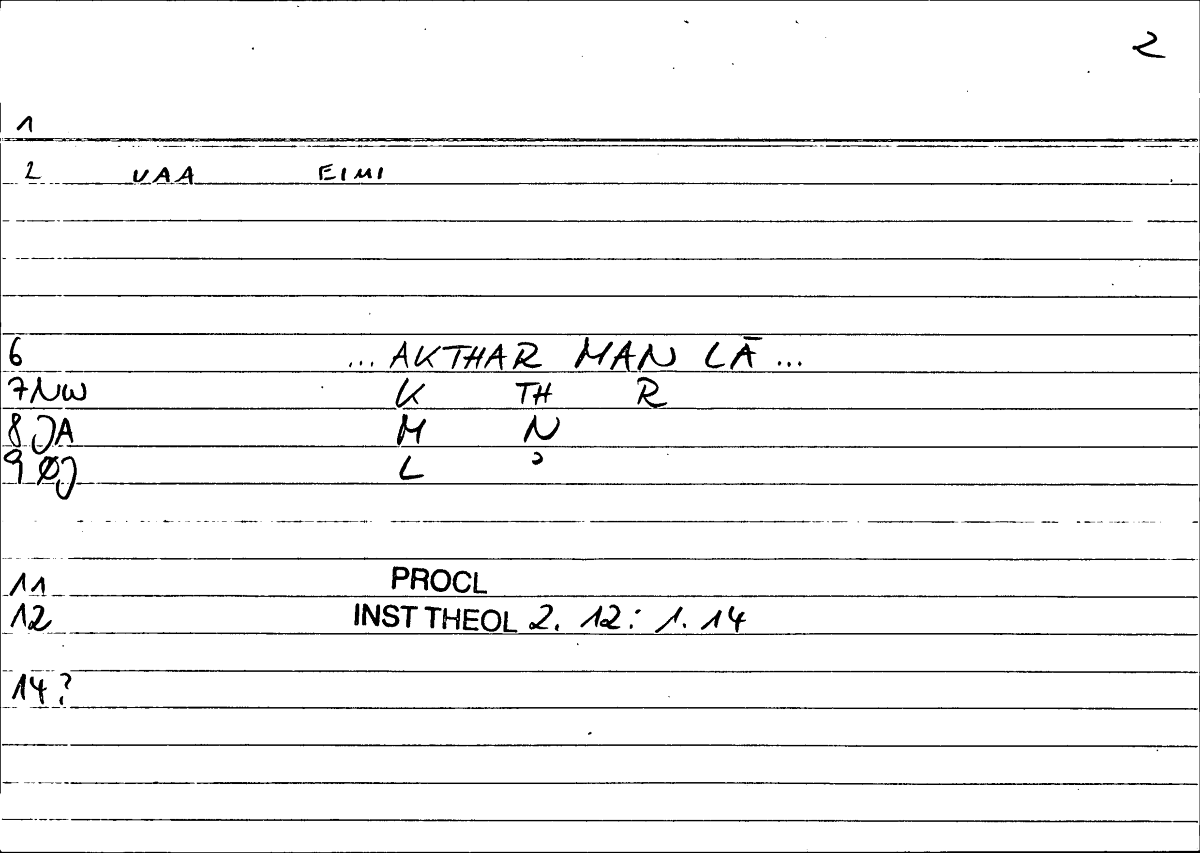 2
1
2 VAA EIMI
6 ... AKTHAR MAN LĀ ...
7 NW K TH R
8 JA M N
9 ØJ L ʾ
11 PROCL
12 INST THEOL 2. 12: 1. 14
14?